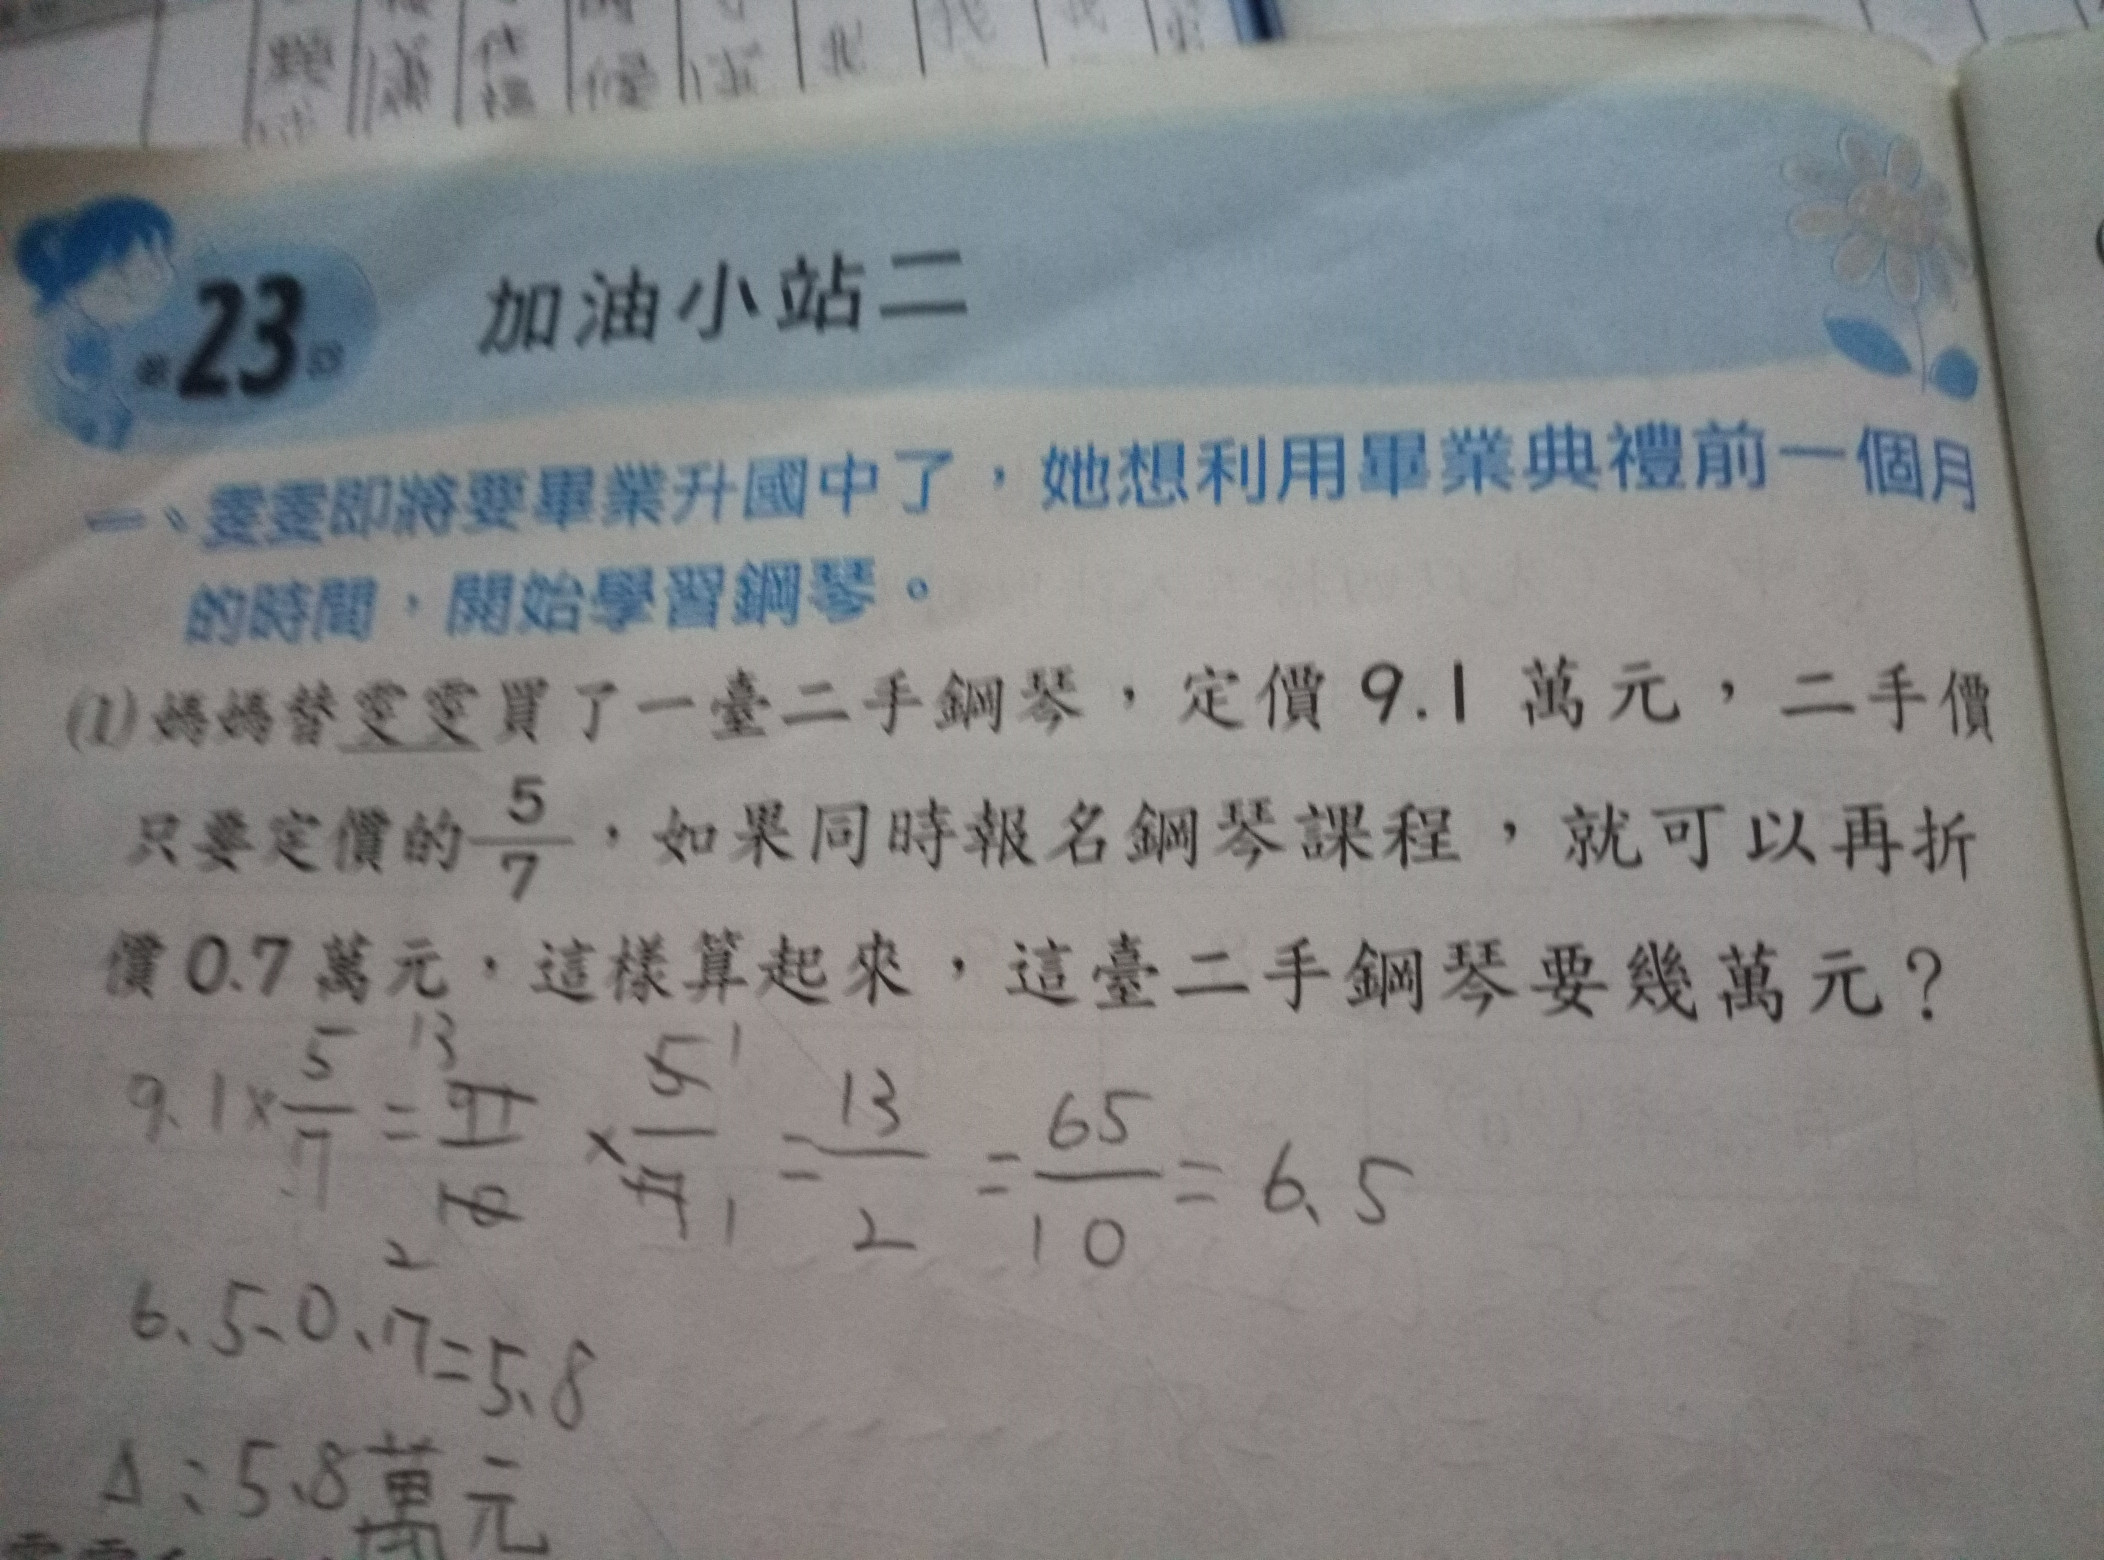 23 加油小站二
一、雯雯即將要畢業升國中了,她想利用畢業典禮前一個月
的時間,開始學習鋼琴。
(1)媽媽替雯雯買了一臺二手鋼琴,定價9.1萬元,二手價
只要定價的5/7,如果同時報名鋼琴課程,就可以再折
價0.7萬元,這樣算起來,這臺二手鋼琴要幾萬元?
9.1×5/7=91/10×5/7=13/2=65/10=6.5
6.5-0.7=5.8
A:5.8萬元